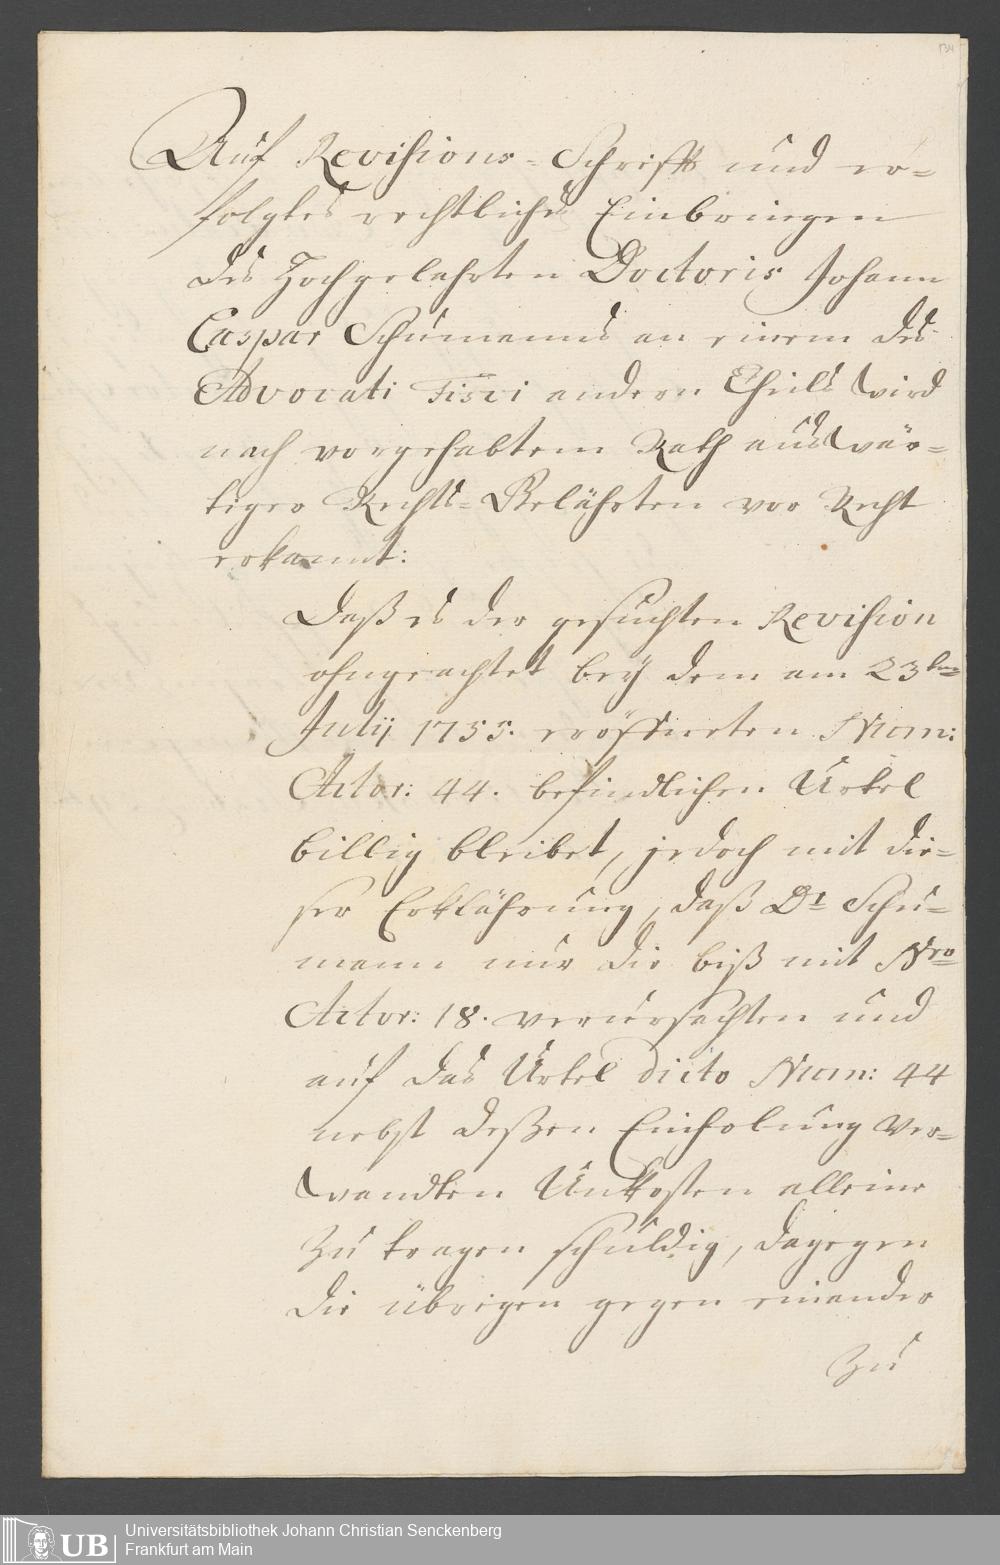 134
Auf Revisions-Schrifft und er=
folgtes rechtliches Einbringen
des Hochgelahrten Doctoris Johann
Caspar Schumanns an einem des
Advocati Fisci andern Theils wird
nach vorgehabtem Rath auswär=
tiger Rechts=Gelährten vor Recht
erkannt:
Daß es der gesuchten Revision
ohngeachtet bey dem am 23ten
Julij 1755. eröffneten Num:
Actor: 44. befindlichen Urtel
billig bleibet, jedoch mit die=
ser Erklährung, daß Dr Schu=
mann nur die biß mit Nro
Actor: 18. verursachten und
auf das Urtel dicto Num: 44
nebst deßen Einholung ver=
wandten Unkosten alleine
zu tragen schuldig, dagegen
die übrigen gegen einander
zu
UB
Universitätsbibliothek Johann Christian Senckenberg
Frankfurt am Main